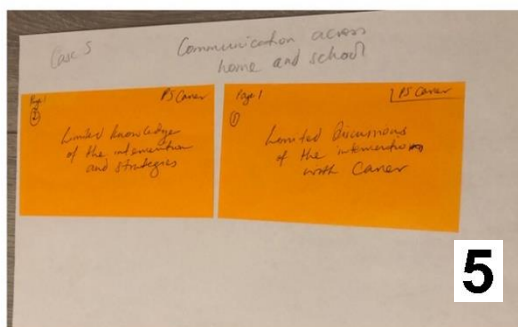 Case 5
Communication across
home and school
Page 1
PS Carer
2
Limited knowledge
of the intervention
and strategies
Page 1
PS Carer
1
Limited Discussions
of the intervention
with Carer
5